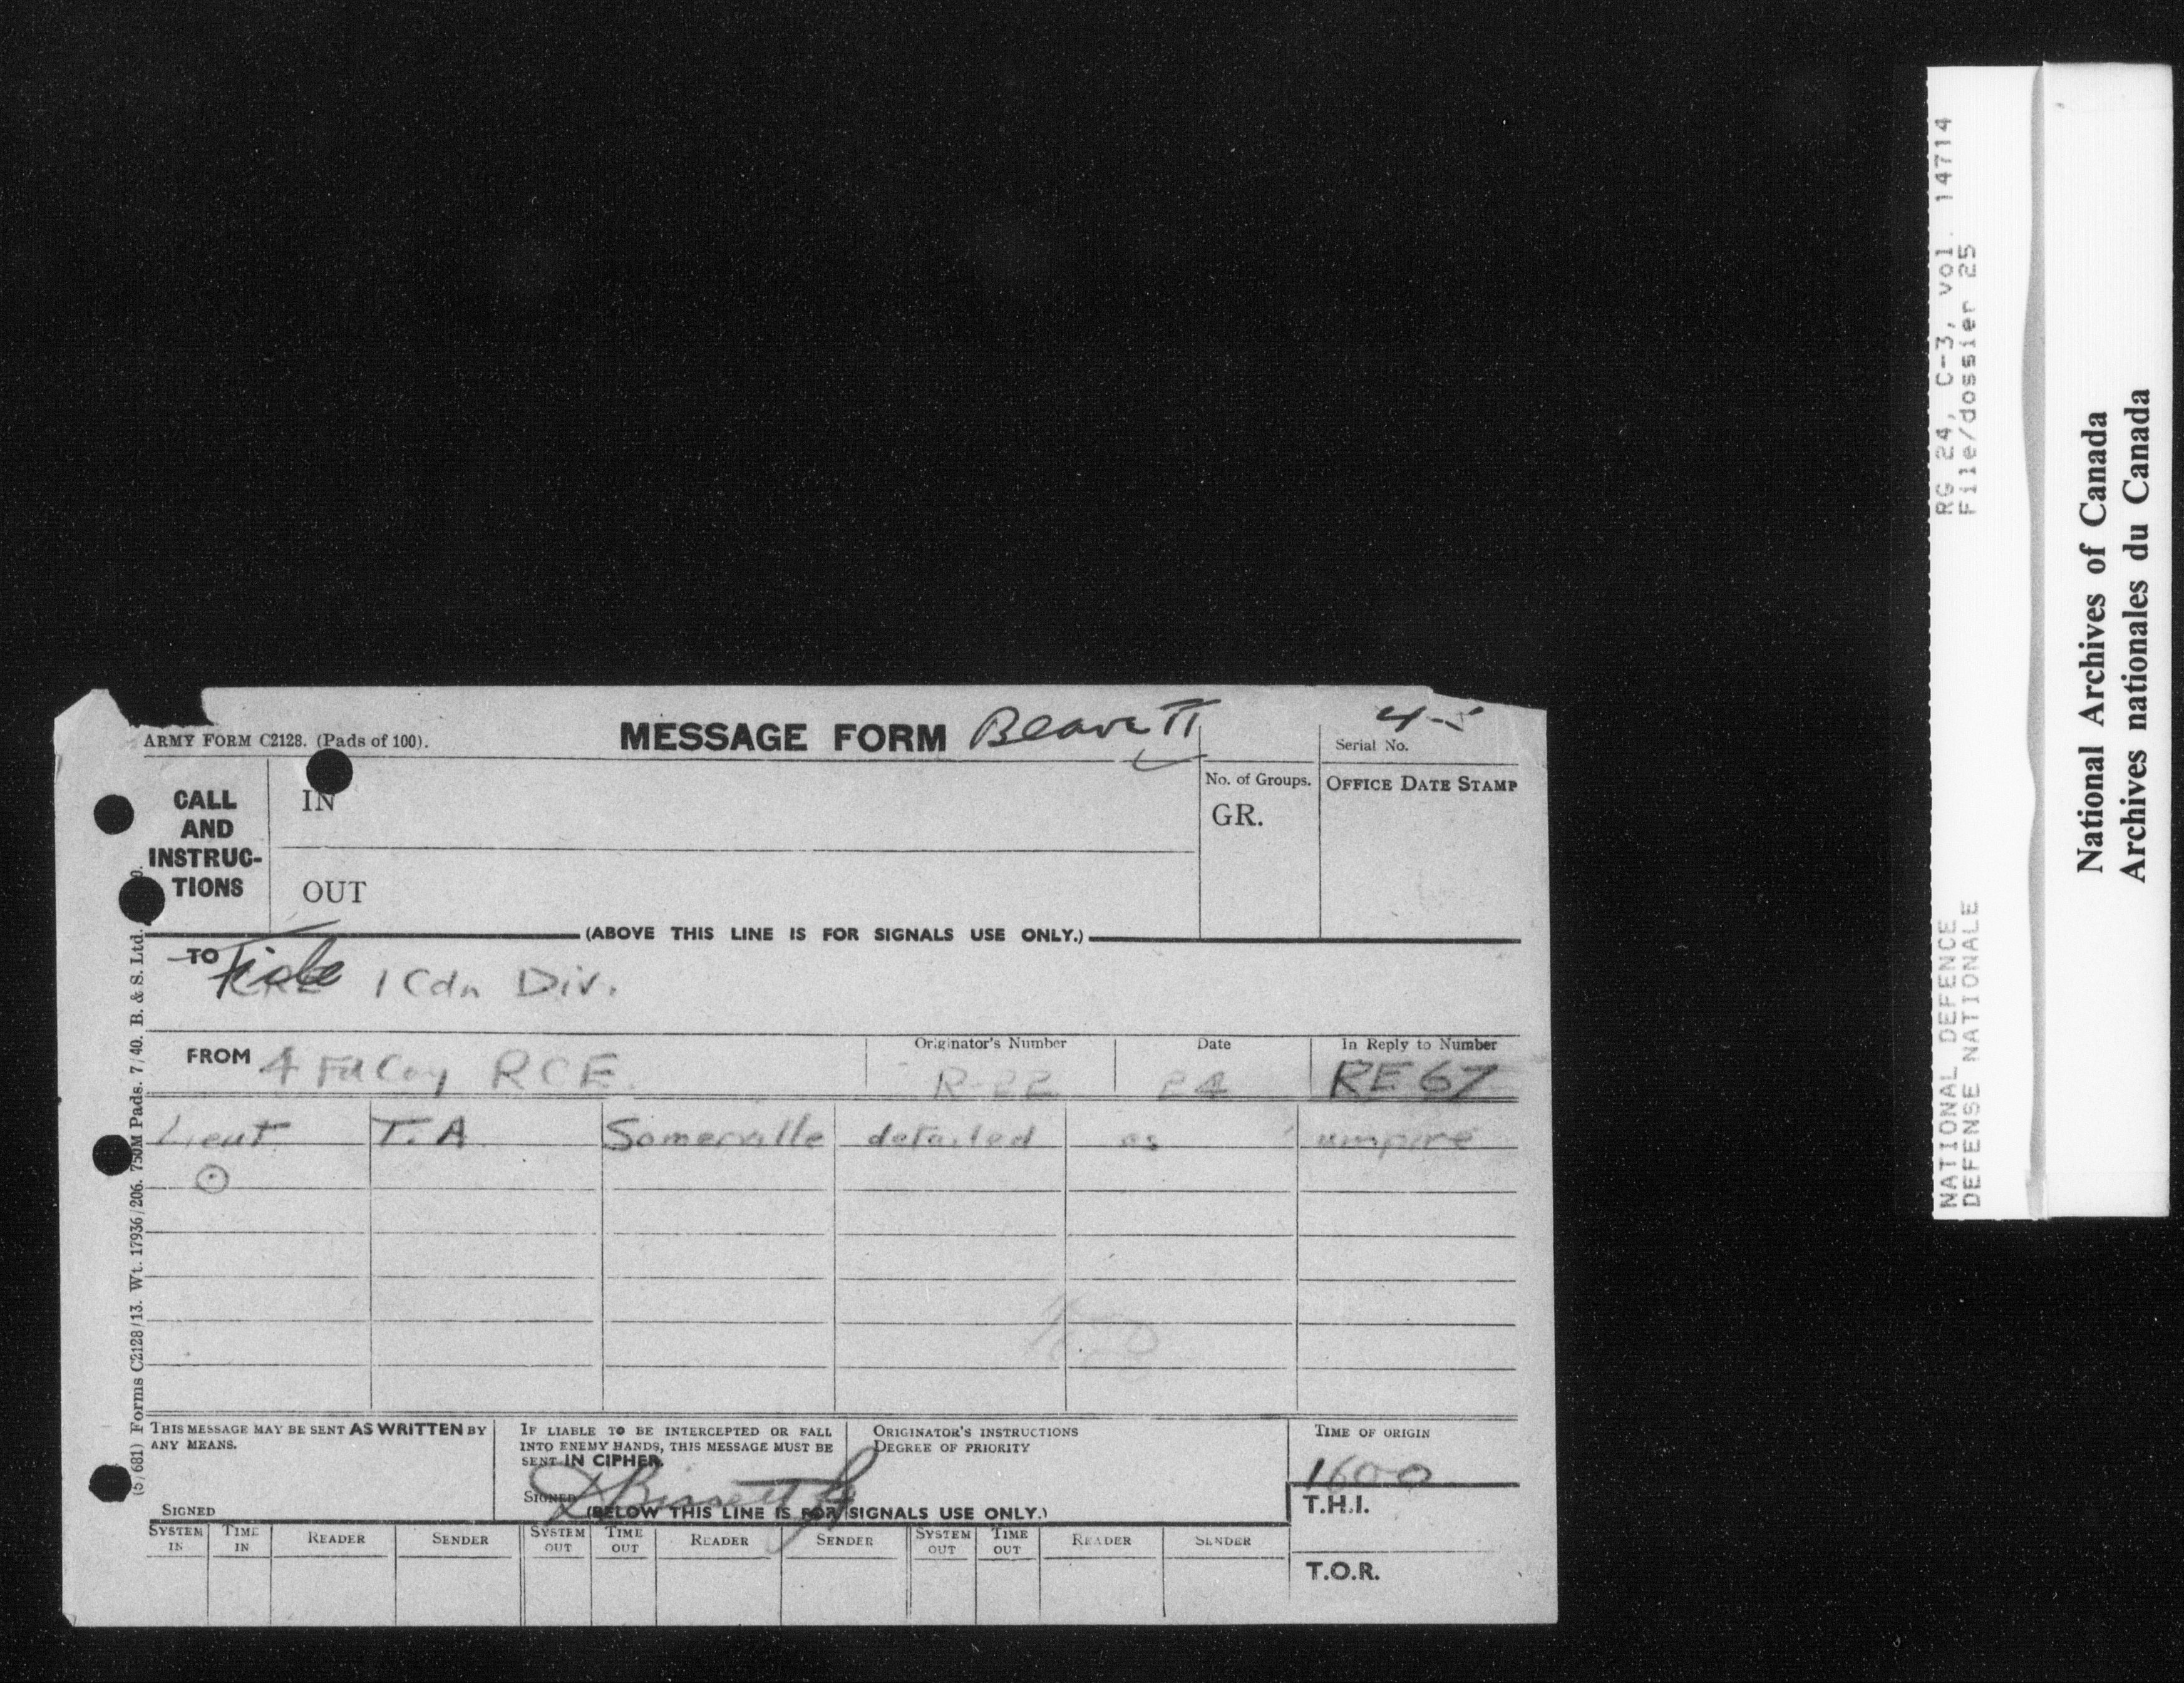 ARMY FORM C2128. (Pads of 100).
MESSAGE FORM
Beaver II
4-5
Serial No.
CALL AND INSTRUC-TIONS
IN
No. of Groups.
GR.
OFFICE DATE STAMP
OUT
(ABOVE THIS LINE IS FOR SIGNALS USE ONLY.)
TO 1 Cdn Div.
FROM 4 Fd Coy RCE.
Originator's Number
R-22
Date
24
In Reply to Number
RE 67
Lieut T. A. Somerville detailed as umpire
THIS MESSAGE MAY BE SENT AS WRITTEN BY ANY MEANS.
SIGNED
IF LIABLE TO BE INTERCEPTED OR FALL INTO ENEMY HANDS, THIS MESSAGE MUST BE SENT IN CIPHER.
SIGNED Bissett
ORIGINATOR'S INSTRUCTIONS
DEGREE OF PRIORITY
TIME OF ORIGIN
1600
(BELOW THIS LINE IS FOR SIGNALS USE ONLY.)
T.H.I.
SYSTEM IN TIME IN READER SENDER SYSTEM OUT TIME OUT READER SENDER SYSTEM OUT TIME OUT READER SENDER
T.O.R.
(5/681) Forms C2128/13. Wt. 17936/206. 750M Pads. 7/40. B. & S. Ltd.
RG 24, C-3, vol. 14714
File/dossier 25
NATIONAL DEFENCE
DEFENSE NATIONALE
National Archives of Canada
Archives nationales du Canada